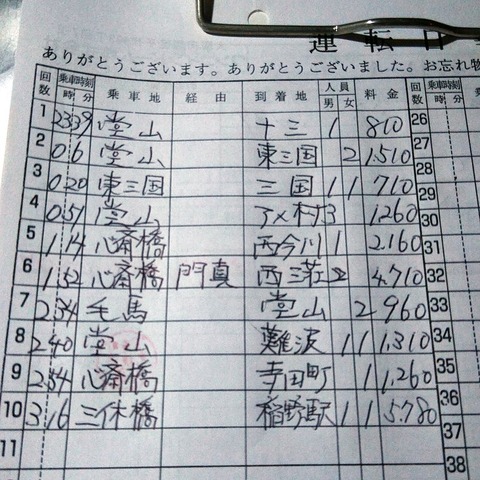 運転日
ありがとうございます。ありがとうございました。お忘れ物
回数 乗車時刻 時 分 乗車地 経由 到着地 人員 男 女 料金
1 23 39 堂山 十三 1 800 26
2 0 6 堂山 東三国 2 1,510 27
3 0 20 東三国 三国 1 1 710 28
4 0 51 堂山 アメ村 3 1,260 29
5 1 14 心斎橋 西今川 1 2,160 30
6 1 52 心斎橋 門真 西三荘 2 4,710 31
7 2 34 毛馬 堂山 2 960 32
8 2 40 堂山 難波 1 1 1,310 33
9 2 54 心斎橋 寺田町 1 1,260 34
10 3 16 三休橋 稲野駅 1 1 5,780 35
11 36
37
38